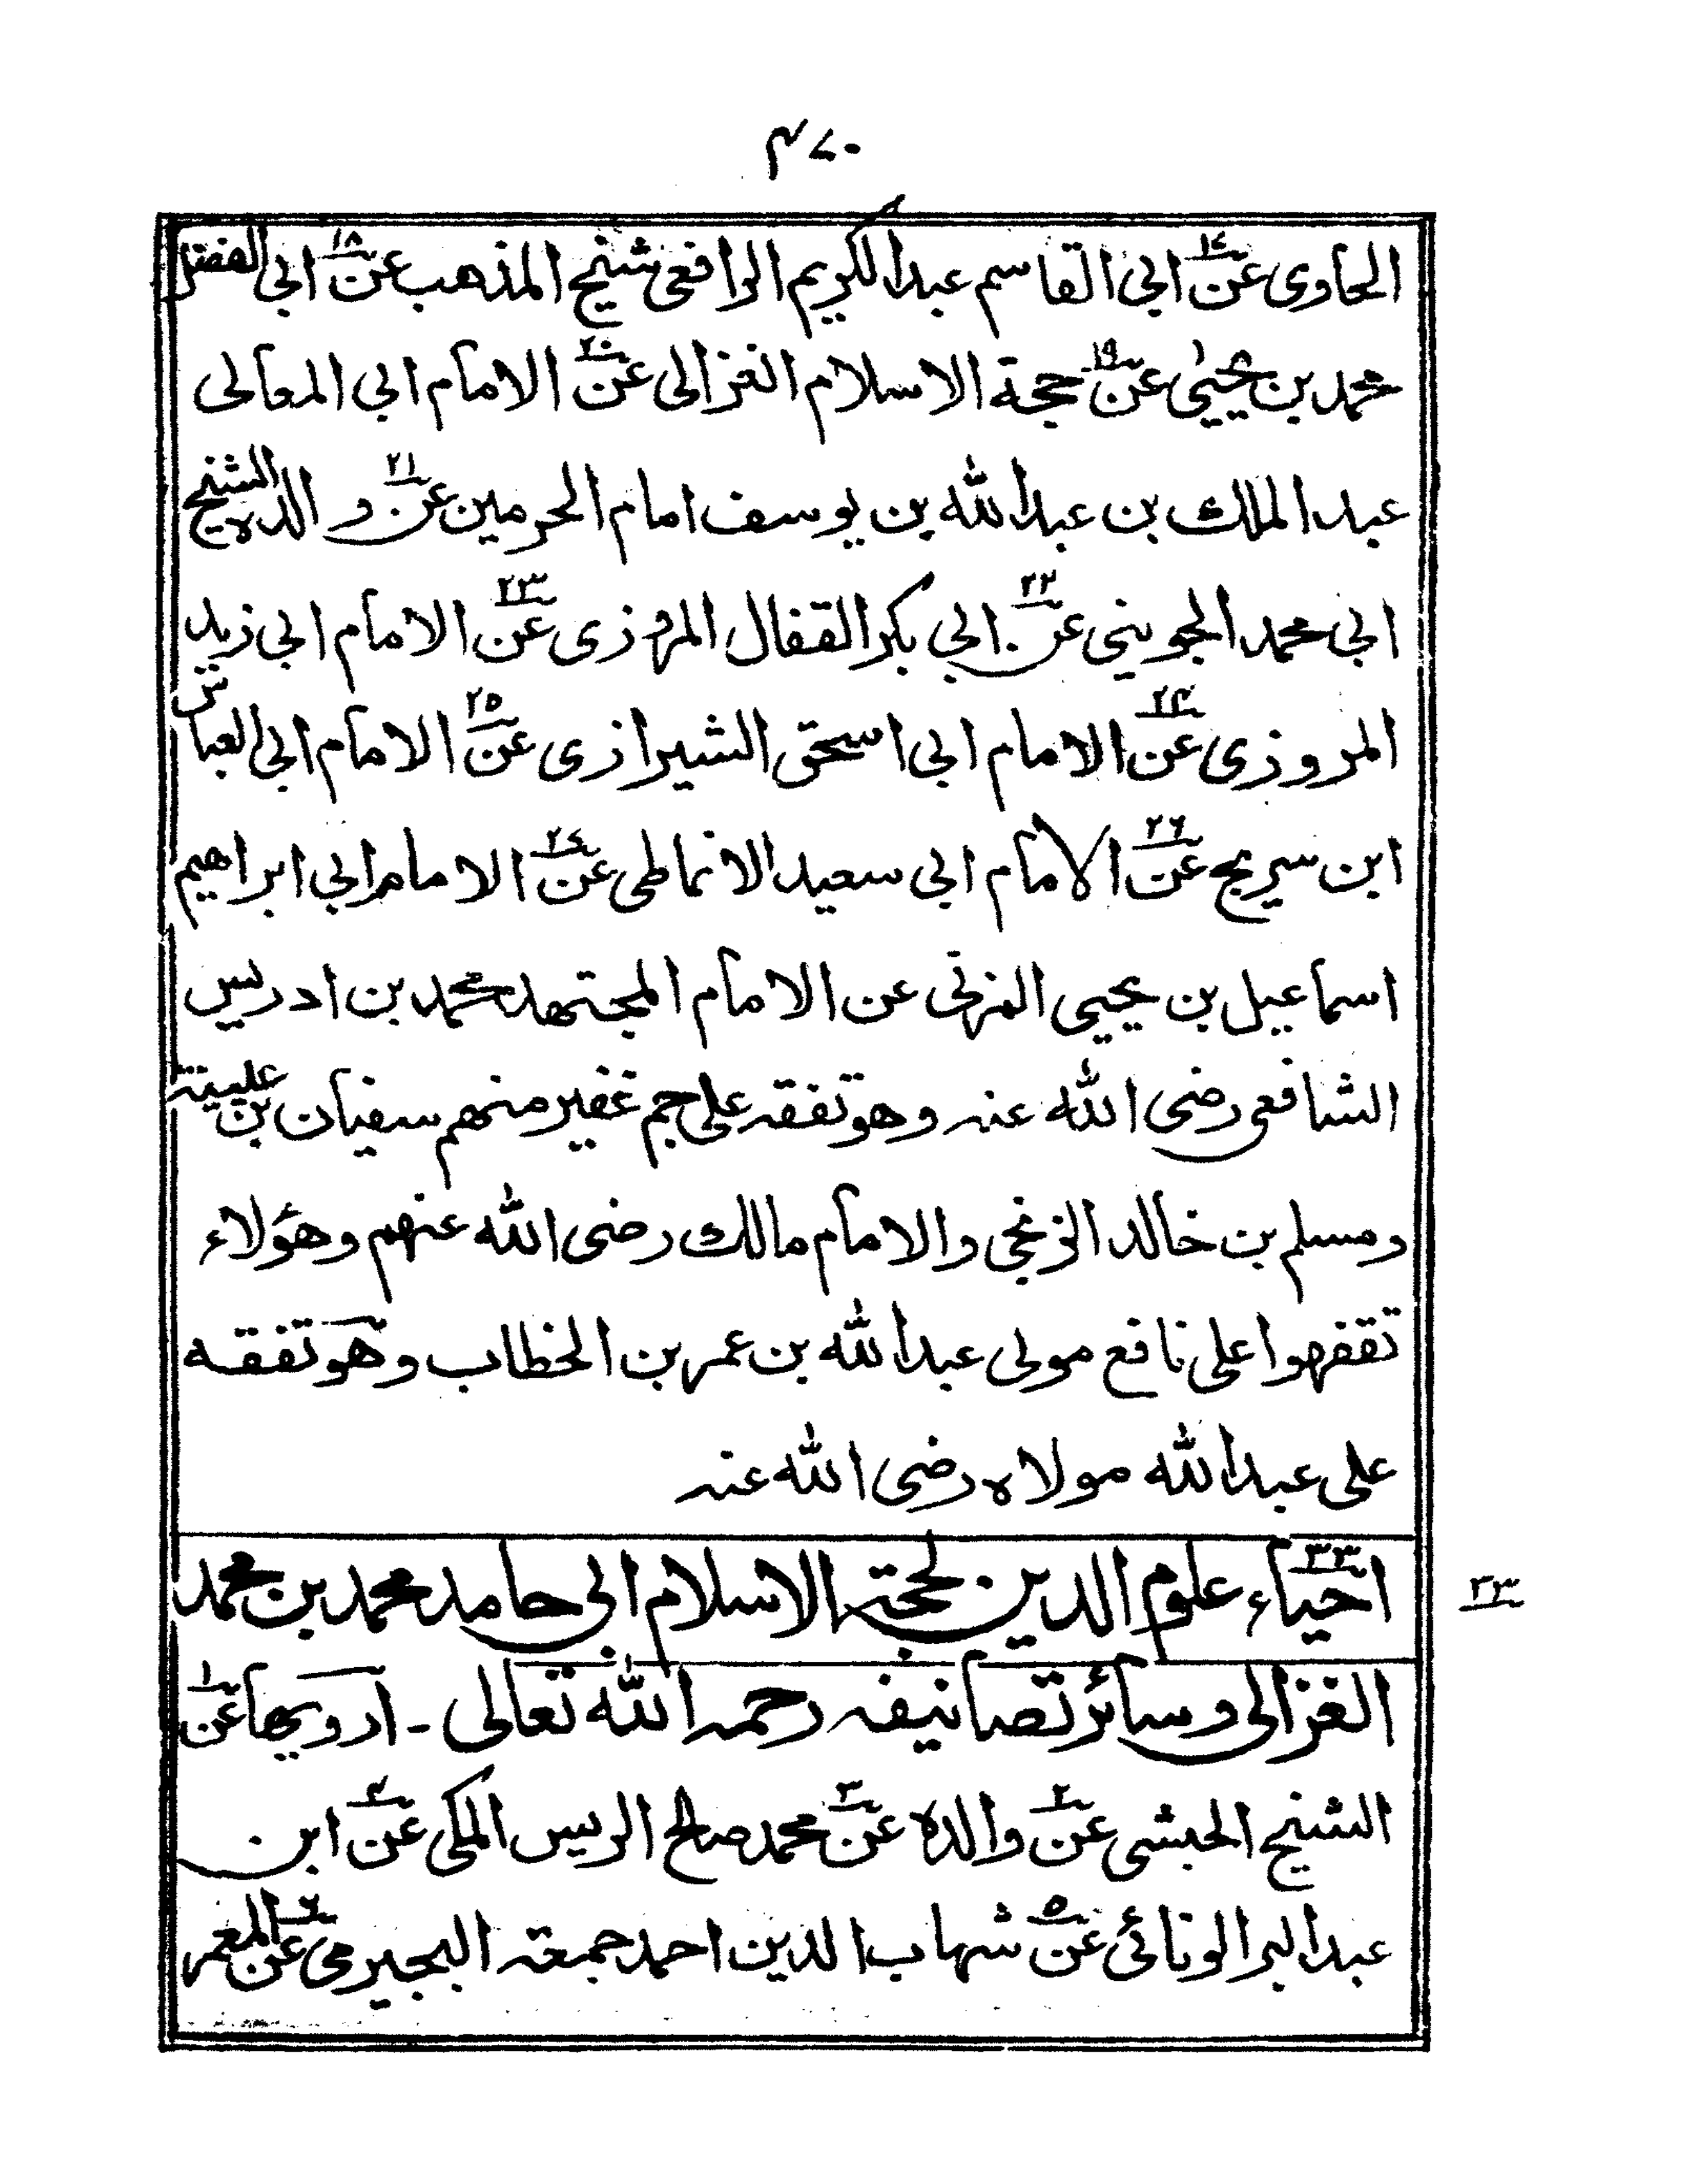 ۴۷۰
الحاوى عن۱۷ ابى القاسم عبدالكريم الرافعى شيخ المذهب عن۱۸ ابى الفضل
محمد بن يحيىٰ عن۱۹ حجة الاسلام الغزالى عن۲۰ الامام ابى المعالى
عبد الملك بن عبدالله بن يوسف امام الحرمين عن۲۱ والده الشيخ
ابى محمد الجوينى عن۲۲ ابى بكر القفال المروزى عن۲۳ الامام ابى زيد
المروزى عن۲۴ الامام ابى اسحق الشيرازى عن۲۵ الامام ابى العباس
ابن سريج عن۲۶ الامام ابى سعيد الانماطى عن۲۷ الامام ابى ابراهيم
اسماعيل بن يحيى المزنى عن الامام المجتهد محمد بن ادريس
الشافعى رضى الله عنه وهو تفقه على جم غفير منهم سفيان بن عيينة
ومسلم بن خالد الزنجى والامام مالك رضى الله عنهم وهؤلاء
تفقهوا على نافع مولى عبدالله بن عمر بن الخطاب وهو تفقه
على عبدالله مولاه رضى الله عنه
۳۳ احياء علوم الدين لحجة الاسلام ابى حامد محمد بن محمد
۳۳
الغزالى وسائر تصانيفه رحمه الله تعالى ـ ارويها عن۱
الشيخ الحبشى عن۲ والده عن۳ محمد صالح الريس المكى عن۴ ابن
عبدالبر الونائى عن۵ شهاب الدين احمد جمعة البجيرمى عن۶ المعمر